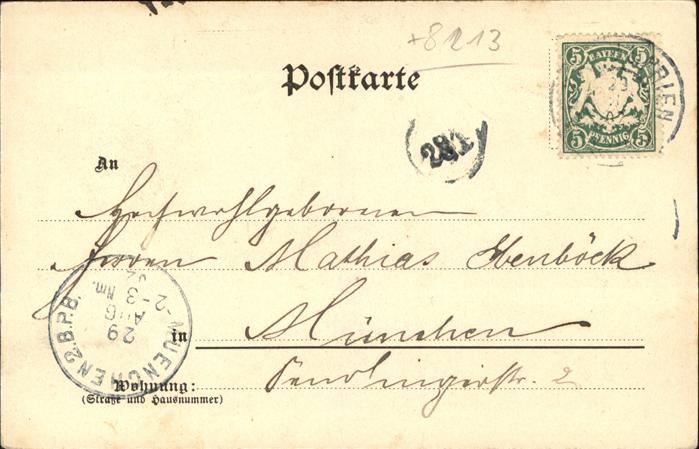 +8213
Postkarte
5 BAYERN 5
5 PFENNIG 5
RIEN
An
Hochwohlgeboren
Herrn Mathias Ebenböck
in München
Wohnung: Sendlingerstr. 2
(Straße und Hausnummer)
MUENCHEN 2. B.P.B.
29
AUG
2-3 Nm.
02